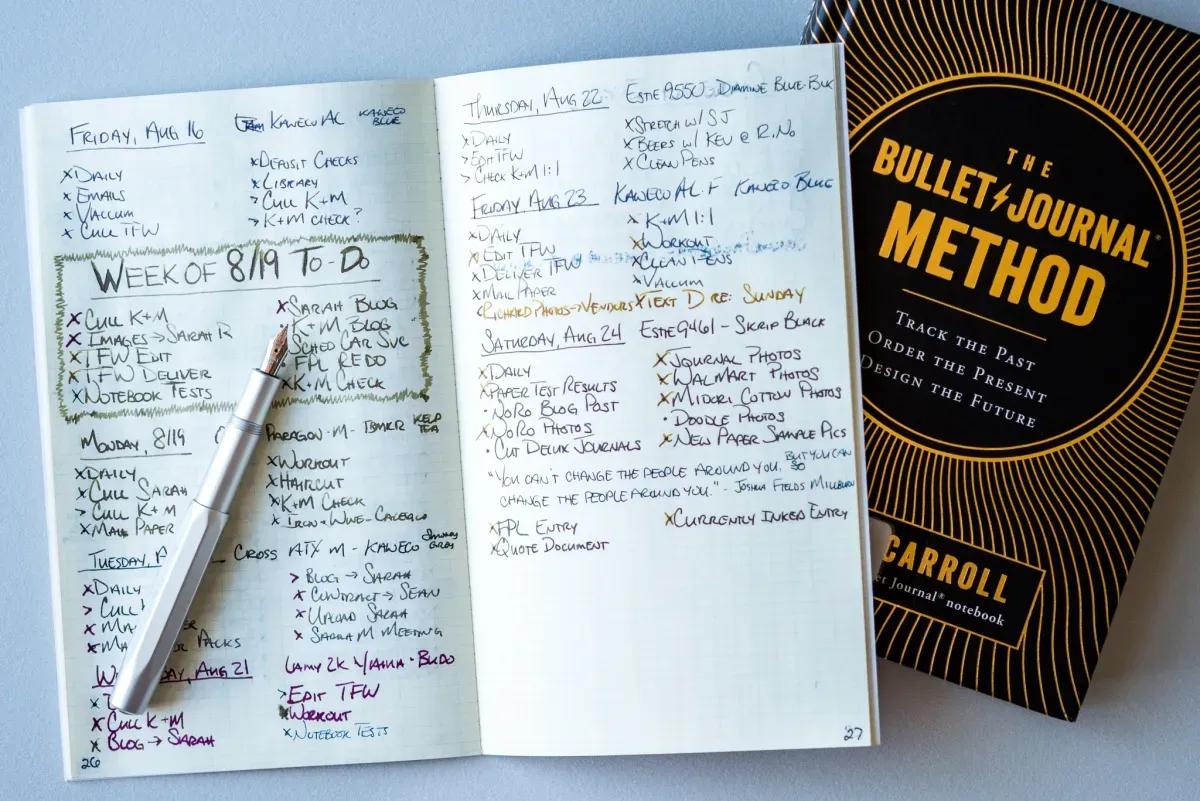 FRIDAY, AUG 16 KAWECO AL KAWECO BLUE
xDAILY
xEMAILS
xVACUUM
xCULL TFW
xDEPOSIT CHECKS
xLIBRARY
>CULL K+M
>K+M CHECK?
WEEK OF 8/19 TO-DO
xCULL K+M
xIMAGES→SARAH R
xTFW EDIT
xTFW DELIVER
xNOTEBOOK TESTS
xSARAH BLOG
K+M BLOG
SCHED CAR SVC
FPL REDO
xK+M CHECK
MONDAY, 8/19 PARAGON-M-IBMKR KELP TEA
xDAILY
xCULL SARAH
>CULL K+M
xMAIL PAPER
xWORKOUT
xHAIRCUT
xK+M CHECK
xIRON+WINE-CALEXICO
TUESDAY, CROSS ATX M - KAWECO SMOKEY GREY
xDAILY
>CULL
xMA
xMA PACKS
>BLOG→SARAH
xCONTRACT→SEAN
xUPLOAD SARAH
xSARAH M MEETING
W DAY, AUG 21 LAMY 2K
x
xCULL K+M
xBLOG→SARAH
>EDIT TFW
xWORKOUT
xNOTEBOOK TESTS
26
THURSDAY, AUG 22 ESTIE 9550 DIAMINE BLUE-BLK
xDAILY
>EDIT TFW
>CHECK K+M 1:1
xSTRETCH W/ SJ
xBEERS W/ KEV @ R.NO
xCLEAN PENS
FRIDAY AUG 23 KAWECO AL-F KAWECO BLUE
xDAILY
xEDIT TFW
xDELIVER TFW
xMAIL PAPER
xK+M 1:1
xWORKOUT
xCLEAN PENS
xVACUUM
<RICHARD PHOTOS→VENDORS xTEXT D RE: SUNDAY
SATURDAY, AUG 24 ESTIE 9461 - SKRIP BLACK
xDAILY
xPAPER TEST RESULTS
•NORO BLOG POST
xNORO PHOTOS
•CUT DELUX JOURNALS
xJOURNAL PHOTOS
xWALMART PHOTOS
xMIDORI COTTON PHOTOS
•DOODLE PHOTOS
xNEW PAPER SAMPLE PICS
"YOU CAN'T CHANGE THE PEOPLE AROUND YOU, BUT YOU CAN
CHANGE THE PEOPLE AROUND YOU." - JOSHUA FIELDS MILLBURN
xFPL ENTRY
xQUOTE DOCUMENT
xCURRENTLY INKED ENTRY
27
THE
BULLET JOURNAL®
METHOD
TRACK THE PAST
ORDER THE PRESENT
DESIGN THE FUTURE
CARROLL
Journal® notebook